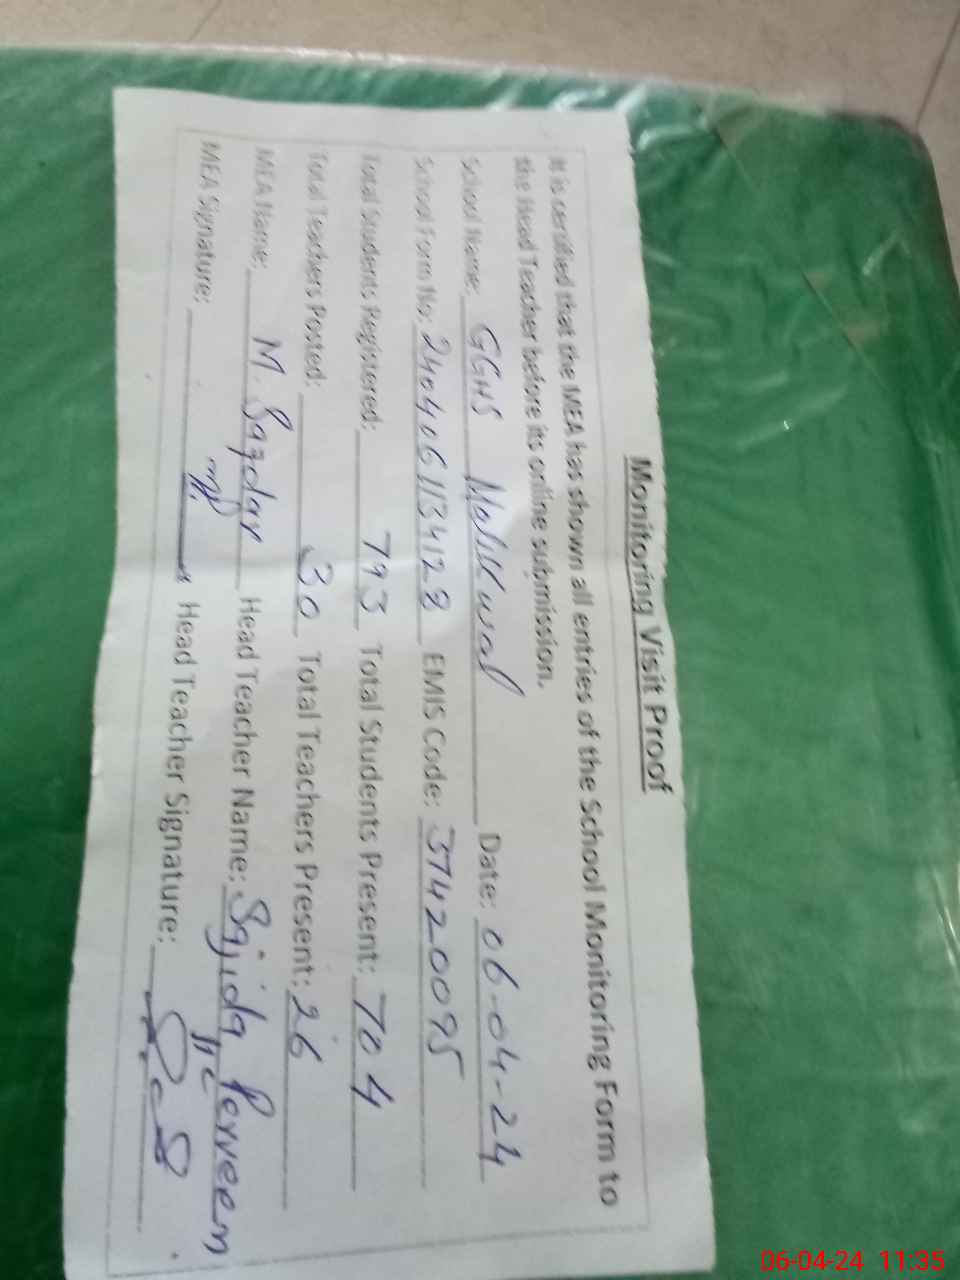 Monitoring Visit Proof
It is certified that the MEA has shown all entries of the School Monitoring Form to
the Head Teacher before its online submission.
School Name: GGHS Date: 06-04-24
School Form No: 2404061134128 EMIS Code: 37420095
Total Students Registered: 793 Total Students Present: 704
Total Teachers Posted: 30 Total Teachers Present: 26
MEA Name: M. Safdar Head Teacher Name: Sajida Perveen
MEA Signature: Head Teacher Signature:
06-04-24 11:35